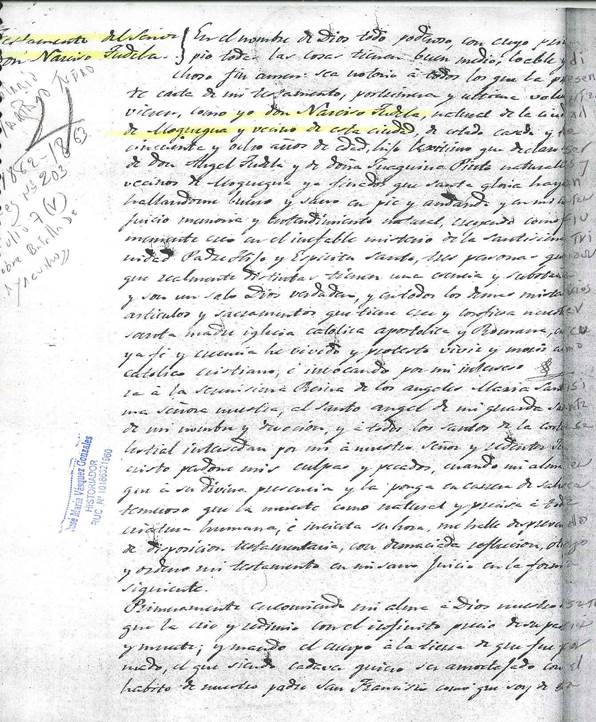 Testamento del Señor
Don Narciso Tudela.
1862-1863
203
José María Vásquez Gonzales
HISTORIADOR
RUC Nº
En el nombre de Dios todo poderoso, con cuyo prin
pio todas las cosas tienen buen medio, loable y di
choso fin amen: sea notorio a todos los que la presen
te carta de mi testamento, postrimera y ultima volun
vieren, como yo don Narciso Tudela, natural de la ciudad
de Moquegua y vecino de esta ciudad, de estado casado y de
cincuenta y ocho años de edad, hijo lexitimo que declaro ser
de don Angel Tudela y de doña Juaquina Pinto naturales y
vecinos de Moquegua ya finados que santa gloria hayan
hallandome bueno y sano en pie y andando y en mi
juicio memoria y entendimiento natural, creyendo como fir
memente creo en el inefable misterio de la santisima Tri
nidad Padre Hijo y Espiritu Santo, tres personas que aun
que realmente distintas tienen una esencia y substancia
y son un solo Dios verdadero, y en todos los demas misterios
articulos y sacramentos que tiene cree y confiesa nuestra
santa madre iglesia catolica apostolica y Romana, en cu
ya fé y creencia he vivido y protesto vivir y morir como
catolico cristiano, é invocando por mi
ra á la serenisima Reina de los angeles Maria santisi
ma señora nuestra, al santo angel de mi guarda santo
de mi nombre y devocion, y á todos los santos de la corte ce
lestial intercedan por mi á nuestro señor y redentor Jesu
cristo perdone mis culpas y pecados, cuando mi alma
que á su divina presencia y la ponga en carrera de salva
temeroso que la muerte como natural y precisa á toda
criatura humana, é incierta su hora, me halle desprevenido
de disposicion testamentaria, con demaciada reflexion, otorgo
y ordeno mi testamento en mi sano juicio en la forma
siguiente.
Primeramente encomiendo mi alma á Dios nuestro
que la crio y redimio con el infinito precio de su pa
y muerte; y mando el cuerpo a la tierra de que fue for
mado, el que siendo cadaver quiero sea amortajado con el
habito de nuestro padre San Francisco como que soy de